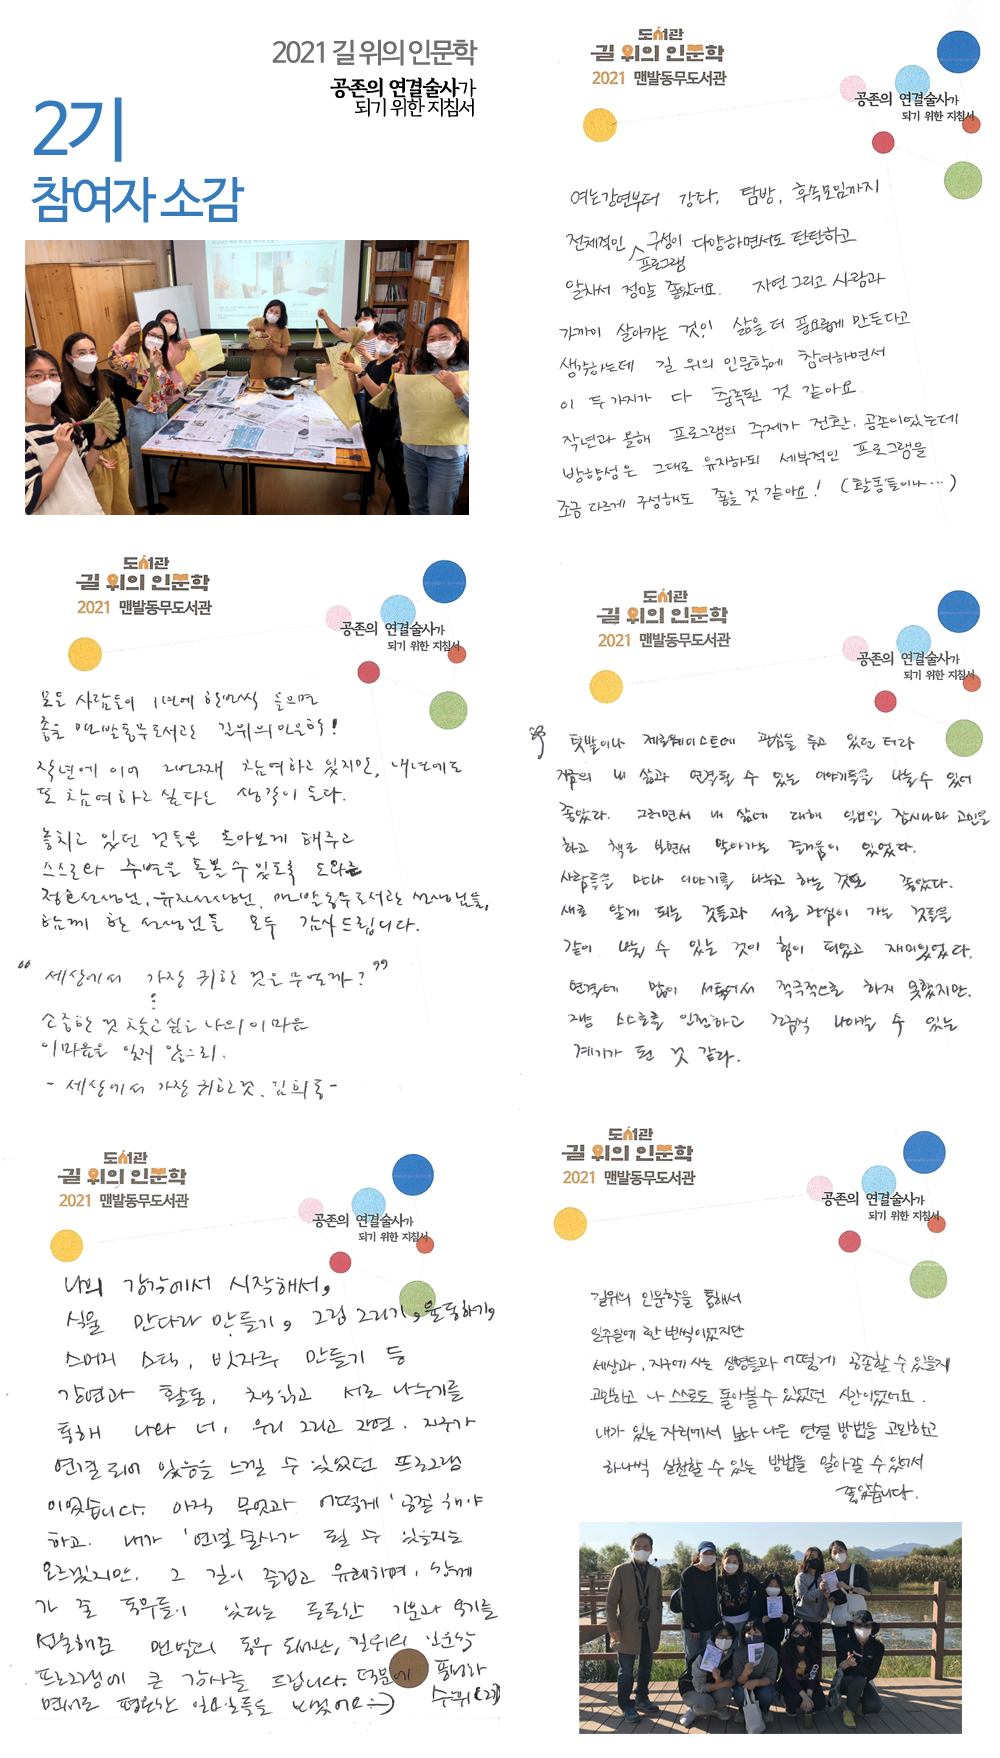 2021 길 위의 인문학
공존의 연결술사가
되기 위한 지침서
2기
참여자 소감
도서관
길 위의 인문학
2021 맨발동무도서관
공존의 연결술사가
되기 위한 지침서
여는강연부터 강좌, 탐방, 후속모임까지
전체적인 프로그램 구성이 다양하면서도 탄탄하고
알차서 정말 좋았어요. 자연 그리고 사람과
가까이 살아가는 것이 삶을 더 풍요롭게 만든다고
생각하는데 길 위의 인문학에 참여하면서
이 두가지가 다 충족된 것 같아요.
작년과 올해 프로그램의 주제가 전환, 공존이었는데
방향성은 그대로 유지하되 세부적인 프로그램을
조금 다르게 구성해도 좋을 것 같아요! (활동들이나...)
도서관
길 위의 인문학
2021 맨발동무도서관
공존의 연결술사가
되기 위한 지침서
모든 사람들이 1년에 한번씩 들으면
좋을 맨발동무도서관 길위의인문학!
작년에 이어 2번째 참여하고 있지만, 내년에도
또 참여하고 싶다는 생각이 든다.
놓치고 있던 것들을 돌아보게 해주고
스스로와 주변을 돌볼 수 있도록 도와준
선생님, 유진선생님, 맨발동무도서관 선생님들,
함께 한 선생님들 모두 감사드립니다.
“세상에서 가장 귀한 것은 무엇일까?”
소중한 것 찾고 싶은 나의 이 마음
이 마음을 잊지 않으리.
- 세상에서 가장 귀한 것, 김희동 -
도서관
길 위의 인문학
2021 맨발동무도서관
공존의 연결술사가
되기 위한 지침서
텃밭이나 제로웨이스트에 관심을 두고 있던 터라
지금의 내 삶과 연결될 수 있는 이야기들을 나눌 수 있어
좋았다. 그러면서 내 삶에 대해 일요일 잠시나마 고민을
하고 책도 보면서 알아가는 즐거움이 있었다.
사람들을 만나 이야기를 나누고 하는 것도 좋았다.
새로 알게 되는 것들과 서로 관심이 가는 것들을
같이 나눌 수 있는 것이 힘이 되었고 재미있었다.
연결에 많이 서툴어서 적극적으로 하지 못했지만,
그냥 스스로를 인정하고 조금씩 나아갈 수 있는
계기가 된 것 같다.
도서관
길 위의 인문학
2021 맨발동무도서관
공존의 연결술사가
되기 위한 지침서
나의 감각에서 시작해서,
식물 만다라 만들기, 그림 그리기, 율동하기,
스머지 스틱, 빗자루 만들기 등
강연과 활동, 책읽고 서로 나누기를
통해 나와 너, 우리 그리고 자연, 지구가
연결되어 있음을 느낄 수 있었던 프로그램
이었습니다. 아직 무엇과 어떻게 '공존'해야
하고, 내가 '연결술사'가 될 수 있을지는
모르겠지만, 그 길이 즐겁고 유쾌하며, 함께
가 줄 동무들이 있다는 든든한 기분과 용기를
선물해준 맨발의 동무 도서관, 길위의 인문학
프로그램에 큰 감사를 드립니다. 덕분에 풍성하
면서도 평온한 일요일들을 보냈어요 :-)
도서관
길 위의 인문학
2021 맨발동무도서관
공존의 연결술사가
되기 위한 지침서
길위의 인문학을 통해서
일주일에 한 번씩이었지만
세상과, 지구에 사는 생명들과 어떻게 공존할 수 있을지
고민하고 나 스스로도 돌아볼 수 있었던 시간이었어요.
내가 있는 자리에서 보다 나은 연결 방법을 고민하고
하나씩 실천할 수 있는 방법을 알아갈 수 있어서
좋았습니다.